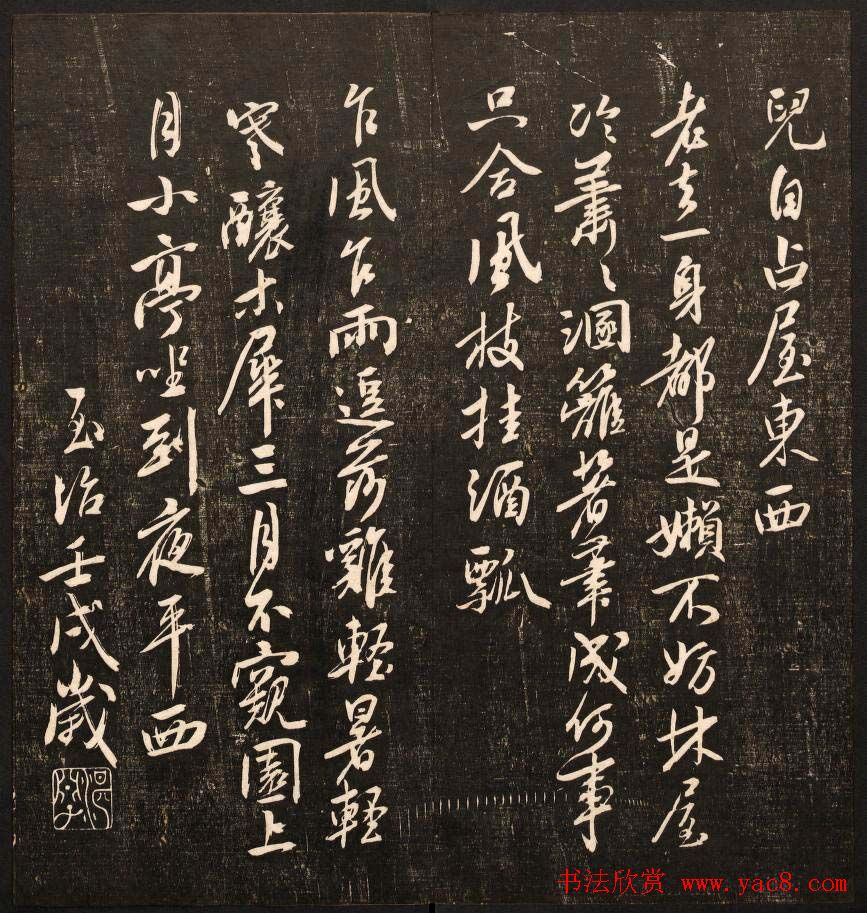 兒自占屋東西
老去一身都是嬾不妨林屋
冷蕭〻溷籬著筆成何事
只合風枝挂酒瓢
乍風乍雨逗難輕暑輕
寒釀木犀三月不窺園上
月小亭坐到夜平西
至治壬戌歲
书法欣赏 www.yac8.com